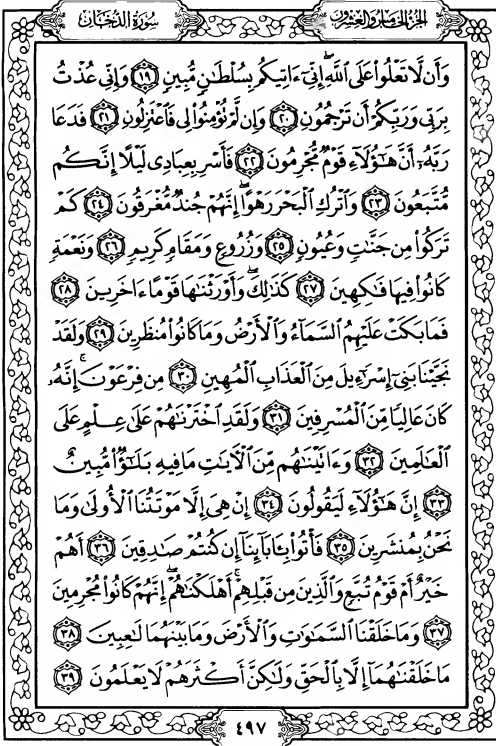 سُورَةُ الدُّخَانِ
الجُزْءُ الخَامِسُ وَالعِشْرُونَ
وَأَن لَّا تَعْلُوا۟ عَلَى ٱللَّهِ ۖ إِنِّىٓ ءَاتِيكُم بِسُلْطَـٰنٍ مُّبِينٍ ١٩ وَإِنِّى عُذْتُ
بِرَبِّى وَرَبِّكُمْ أَن تَرْجُمُونِ ٢٠ وَإِن لَّمْ تُؤْمِنُوا۟ لِى فَٱعْتَزِلُونِ ٢١ فَدَعَا
رَبَّهُۥٓ أَنَّ هَـٰٓؤُلَآءِ قَوْمٌ مُّجْرِمُونَ ٢٢ فَأَسْرِ بِعِبَادِى لَيْلًا إِنَّكُم
مُّتَّبَعُونَ ٢٣ وَٱتْرُكِ ٱلْبَحْرَ رَهْوًا ۖ إِنَّهُمْ جُندٌ مُّغْرَقُونَ ٢٤ كَمْ
تَرَكُوا۟ مِن جَنَّـٰتٍ وَعُيُونٍ ٢٥ وَزُرُوعٍ وَمَقَامٍ كَرِيمٍ ٢٦ وَنَعْمَةٍ
كَانُوا۟ فِيهَا فَـٰكِهِينَ ٢٧ كَذَٰلِكَ ۖ وَأَوْرَثْنَـٰهَا قَوْمًا ءَاخَرِينَ ٢٨
فَمَا بَكَتْ عَلَيْهِمُ ٱلسَّمَآءُ وَٱلْأَرْضُ وَمَا كَانُوا۟ مُنظَرِينَ ٢٩ وَلَقَدْ
نَجَّيْنَا بَنِىٓ إِسْرَٰٓءِيلَ مِنَ ٱلْعَذَابِ ٱلْمُهِينِ ٣٠ مِن فِرْعَوْنَ ۚ إِنَّهُۥ
كَانَ عَالِيًا مِّنَ ٱلْمُسْرِفِينَ ٣١ وَلَقَدِ ٱخْتَرْنَـٰهُمْ عَلَىٰ عِلْمٍ عَلَى
ٱلْعَـٰلَمِينَ ٣٢ وَءَاتَيْنَـٰهُم مِّنَ ٱلْـَٔايَـٰتِ مَا فِيهِ بَلَـٰٓؤٌا۟ مُّبِينٌ
٣٣ إِنَّ هَـٰٓؤُلَآءِ لَيَقُولُونَ ٣٤ إِنْ هِىَ إِلَّا مَوْتَتُنَا ٱلْأُولَىٰ وَمَا
نَحْنُ بِمُنشَرِينَ ٣٥ فَأْتُوا۟ بِـَٔابَآئِنَآ إِن كُنتُمْ صَـٰدِقِينَ ٣٦ أَهُمْ
خَيْرٌ أَمْ قَوْمُ تُبَّعٍ وَٱلَّذِينَ مِن قَبْلِهِمْ ۚ أَهْلَكْنَـٰهُمْ ۖ إِنَّهُمْ كَانُوا۟ مُجْرِمِينَ
٣٧ وَمَا خَلَقْنَا ٱلسَّمَـٰوَٰتِ وَٱلْأَرْضَ وَمَا بَيْنَهُمَا لَـٰعِبِينَ ٣٨
مَا خَلَقْنَـٰهُمَآ إِلَّا بِٱلْحَقِّ وَلَـٰكِنَّ أَكْثَرَهُمْ لَا يَعْلَمُونَ ٣٩
٤٩٧